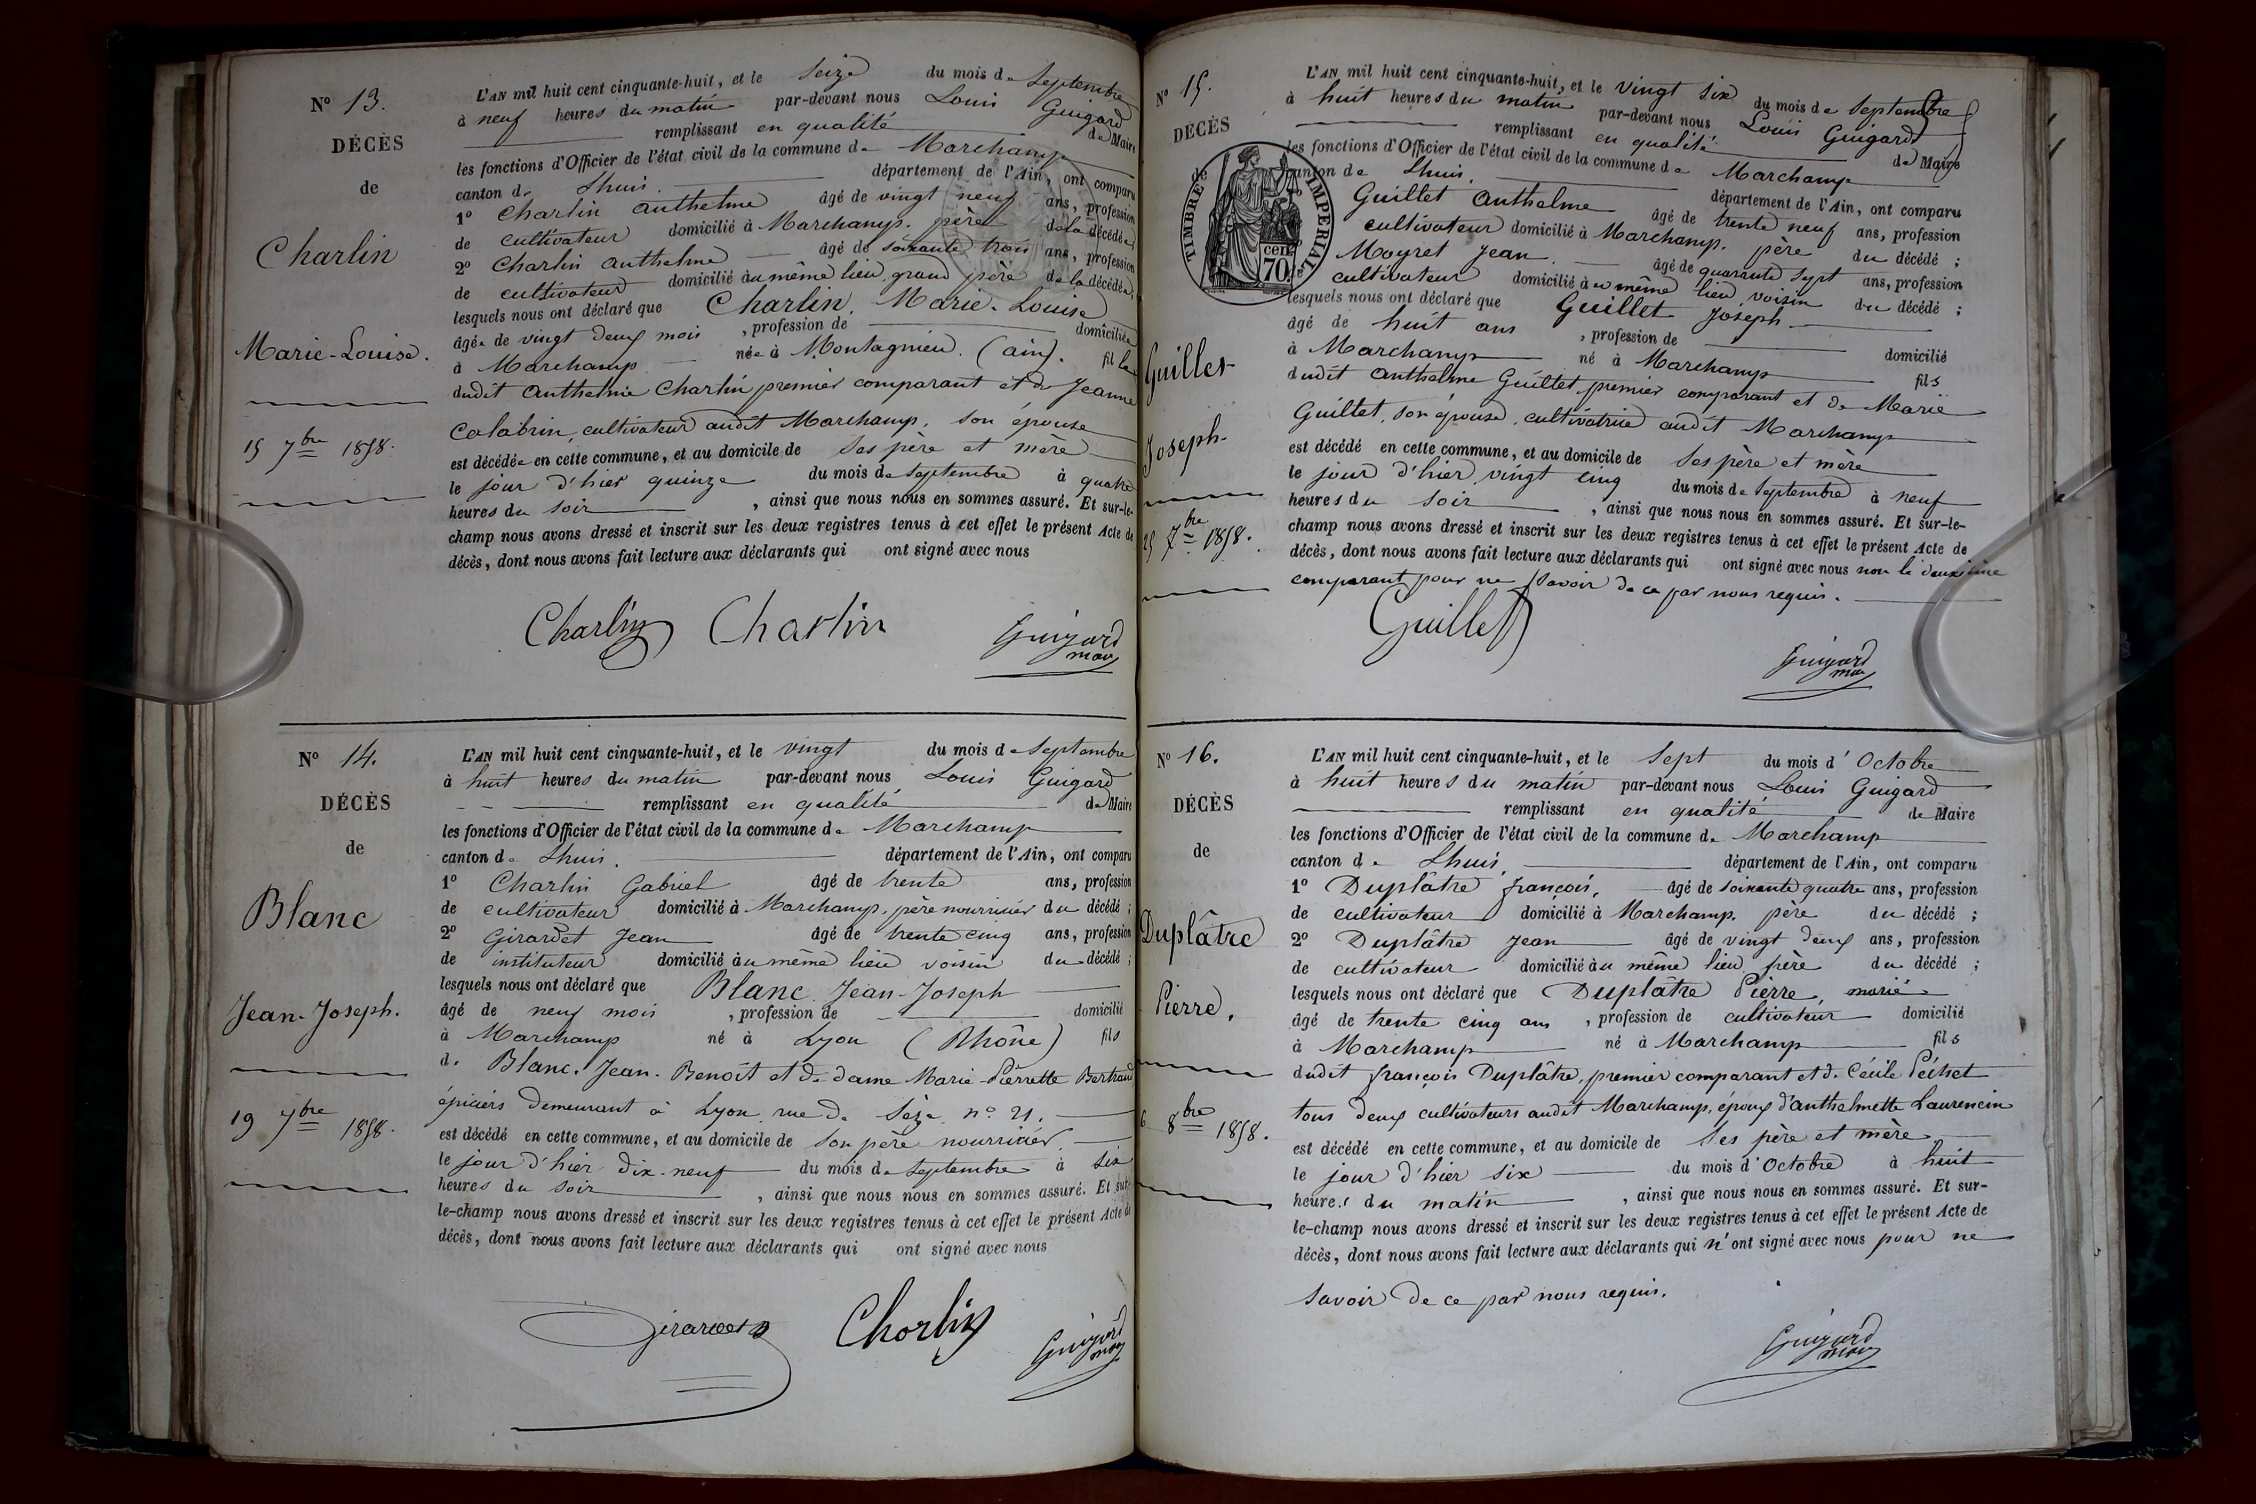 N° 13.
DÉCÈS
de
Charlin
Marie-Louise.
15 7bre 1858.
L'AN mil huit cent cinquante-huit, et le Seize du mois de Septembre
à neuf heures du matin par-devant nous Louis Guigard
remplissant en qualité de Maire
les fonctions d'Officier de l'état civil de la commune de Marchamp
canton de Lhuis. département de l'Ain, ont comparu
1° Charlin Anthelme âgé de vingt neuf ans, profession
de cultivateur domicilié à Marchamp. père de la décédée
2° Charlin Anthelme âgé de soixante trois ans, profession
de cultivateur domicilié au même lieu, grand père de la décédée,
lesquels nous ont déclaré que Charlin, Marie-Louise
âgée de vingt deux mois, profession de domiciliée
à Marchamp née à Montagnieu. (ain). fille
dudit Anthelme Charlin premier comparant et de Jeanne
Calabrin, cultivateur audit Marchamp, son épouse
est décédée en cette commune, et au domicile de Ses père et mère
le jour d'hier quinze du mois de Septembre à quatre
heures du soir, ainsi que nous nous en sommes assuré. Et sur-le-
champ nous avons dressé et inscrit sur les deux registres tenus à cet effet le présent Acte de
décès, dont nous avons fait lecture aux déclarants qui ont signé avec nous
Charlin Charlin Guigard
maire
N° 14.
DÉCÈS
de
Blanc
Jean-Joseph.
19 7bre 1858.
L'AN mil huit cent cinquante-huit, et le vingt du mois de Septembre
à huit heures du matin par-devant nous Louis Guigard
remplissant en qualité de Maire
les fonctions d'Officier de l'état civil de la commune de Marchamp
canton de Lhuis. département de l'Ain, ont comparu
1° Charlin Gabriel âgé de trente ans, profession
de cultivateur domicilié à Marchamp, père nourricier du décédé ;
2° Girardet Jean âgé de trente cinq ans, profession
de instituteur domicilié au même lieu voisin du décédé ;
lesquels nous ont déclaré que Blanc Jean-Joseph
âgé de neuf mois, profession de domicilié
à Marchamp né à Lyon (Rhône) fils
de Blanc. Jean-Benoît et de dame Marie-Pierrette Bertrand
épiciers demeurant à Lyon, rue de Sèze n° 21.
est décédé en cette commune, et au domicile de Son père nourricier
le jour d'hier dix-neuf du mois de Septembre à six
heures du soir, ainsi que nous nous en sommes assuré. Et sur-
le-champ nous avons dressé et inscrit sur les deux registres tenus à cet effet le présent Acte de
décès, dont nous avons fait lecture aux déclarants qui ont signé avec nous
Girardet Charlin Guigard
maire
N° 15.
DÉCÈS
de
TIMBRE IMPERIAL
70 cen.
Guillet
Joseph
25 7bre 1858.
L'AN mil huit cent cinquante-huit, et le vingt six du mois de Septembre
à huit heures du matin par-devant nous Louis Guigard
remplissant en qualité de Maire
les fonctions d'Officier de l'état civil de la commune de Marchamp
canton de Lhuis. département de l'Ain, ont comparu
Guillet Anthelme âgé de trente neuf ans, profession
cultivateur domicilié à Marchamp. père du décédé ;
Moyret Jean. âgé de quarante sept ans, profession
cultivateur domicilié au même lieu voisin du décédé ;
lesquels nous ont déclaré que Guillet Joseph
âgé de huit ans, profession de domicilié
à Marchamp né à Marchamp fils
dudit Anthelme Guillet premier comparant et de Marie
Guillet, son épouse, cultivatrice audit Marchamp
est décédé en cette commune, et au domicile de Ses père et mère
le jour d'hier vingt cinq du mois de Septembre à neuf
heures du soir, ainsi que nous nous en sommes assuré. Et sur-le-
champ nous avons dressé et inscrit sur les deux registres tenus à cet effet le présent Acte de
décès, dont nous avons fait lecture aux déclarants qui ont signé avec nous non le deuxième
comparant pour ne savoir de ce par nous requis.
Guillet
Guigard
maire
N° 16.
DÉCÈS
de
Duplâtre
Pierre.
6 8bre 1858.
L'AN mil huit cent cinquante-huit, et le Sept du mois d'Octobre
à huit heures du matin par-devant nous Louis Guigard
remplissant en qualité de Maire
les fonctions d'Officier de l'état civil de la commune de Marchamp
canton de Lhuis. département de l'Ain, ont comparu
1° Duplâtre françois, âgé de soixante quatre ans, profession
de cultivateur domicilié à Marchamp. père du décédé ;
2° Duplâtre Jean âgé de vingt deux ans, profession
de cultivateur domicilié au même lieu frère du décédé ;
lesquels nous ont déclaré que Duplâtre Pierre, marié
âgé de trente cinq ans, profession de cultivateur domicilié
à Marchamp né à Marchamp fils
dudit françois Duplâtre, premier comparant et de Cécile
tous deux cultivateurs audit Marchamp, époux d'anthelmette Laurencin
est décédé en cette commune, et au domicile de Ses père et mère
le jour d'hier six du mois d'Octobre à huit
heures du matin, ainsi que nous nous en sommes assuré. Et sur-
le-champ nous avons dressé et inscrit sur les deux registres tenus à cet effet le présent Acte de
décès, dont nous avons fait lecture aux déclarants qui n'ont signé avec nous pour ne
savoir de ce par nous requis.
Guigard
maire